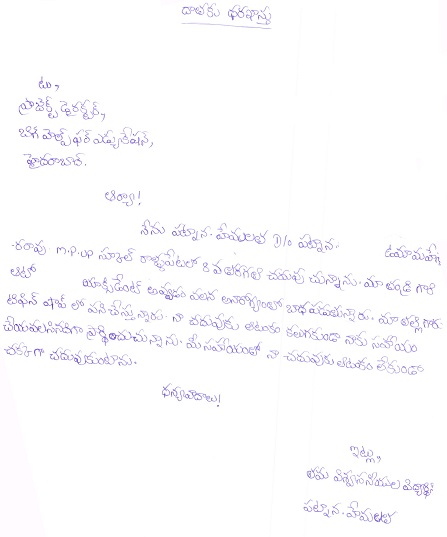 దాతకు ధరఖాస్తు
టు,
ప్రాజెక్ట్ డైరెక్టర్,
బిగ్ హెల్ప్ ఫర్ ఎడ్యుకేషన్,
హైదరాబాద్.
ఆర్యా!
నేను పట్నాన. హేమలత D/o పట్నాన. ఉమామహే
-శ్వరరావు M.P.UP స్కూల్ రాజ్యపేటలో 8 వ తరగతి చదువు చున్నాను. మా తండ్రి గారి
ఆటో యాక్సిడెంట్ అవ్వడం వలన అనారోగ్యంతో బాధ పడుతున్నారు. మా తల్లి గారు
టిఫిన్ షాప్ లో పని చేస్తున్నారు. నా చదువుకు ఆటంకం కలుగకుండా నాకు సహాయం
చేయవలసినదిగా ప్రార్థించుచున్నాను. మీ సహాయంతో నా చదువుకు ఆటంకం లేకుండా
చక్కగా చదువుకుంటాను.
ధన్యవాదాలు!
ఇట్లు,
తమ విశ్వాసనీయుల విద్యార్థిని
పట్నాన. హేమలత